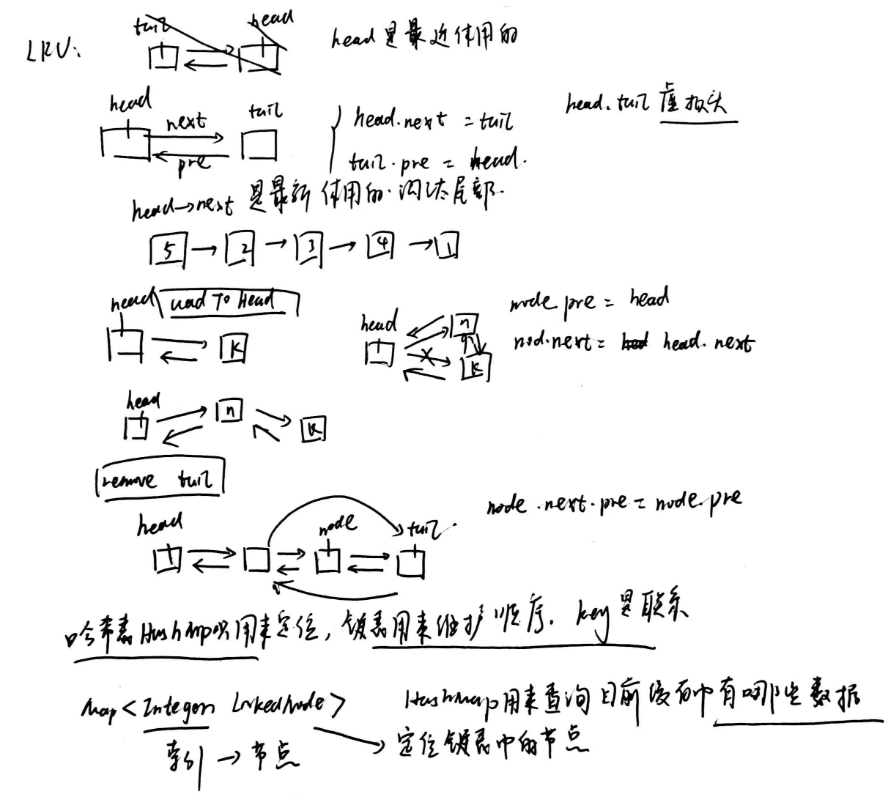 LRU:
tail head
head是最近使用的
head next tail
pre
head.next = tail
tail.pre = head.
head.tail 虚拟头
head→next 是最新使用的. 淘汰尾部.
5 → 2 → 3 → 4 → 1
head add To Head
K
head n
K
node pre = head
nod.next = head.next
head n K
remove tail
head node tail.
node.next.pre = node.pre
哈希表HashMap 用来定位, 链表用来维护顺序. key是联系
Map<Integer LinkedNode>
索引 → 节点
HashMap用来查询目前缓存中有哪些数据
定位链表中的节点